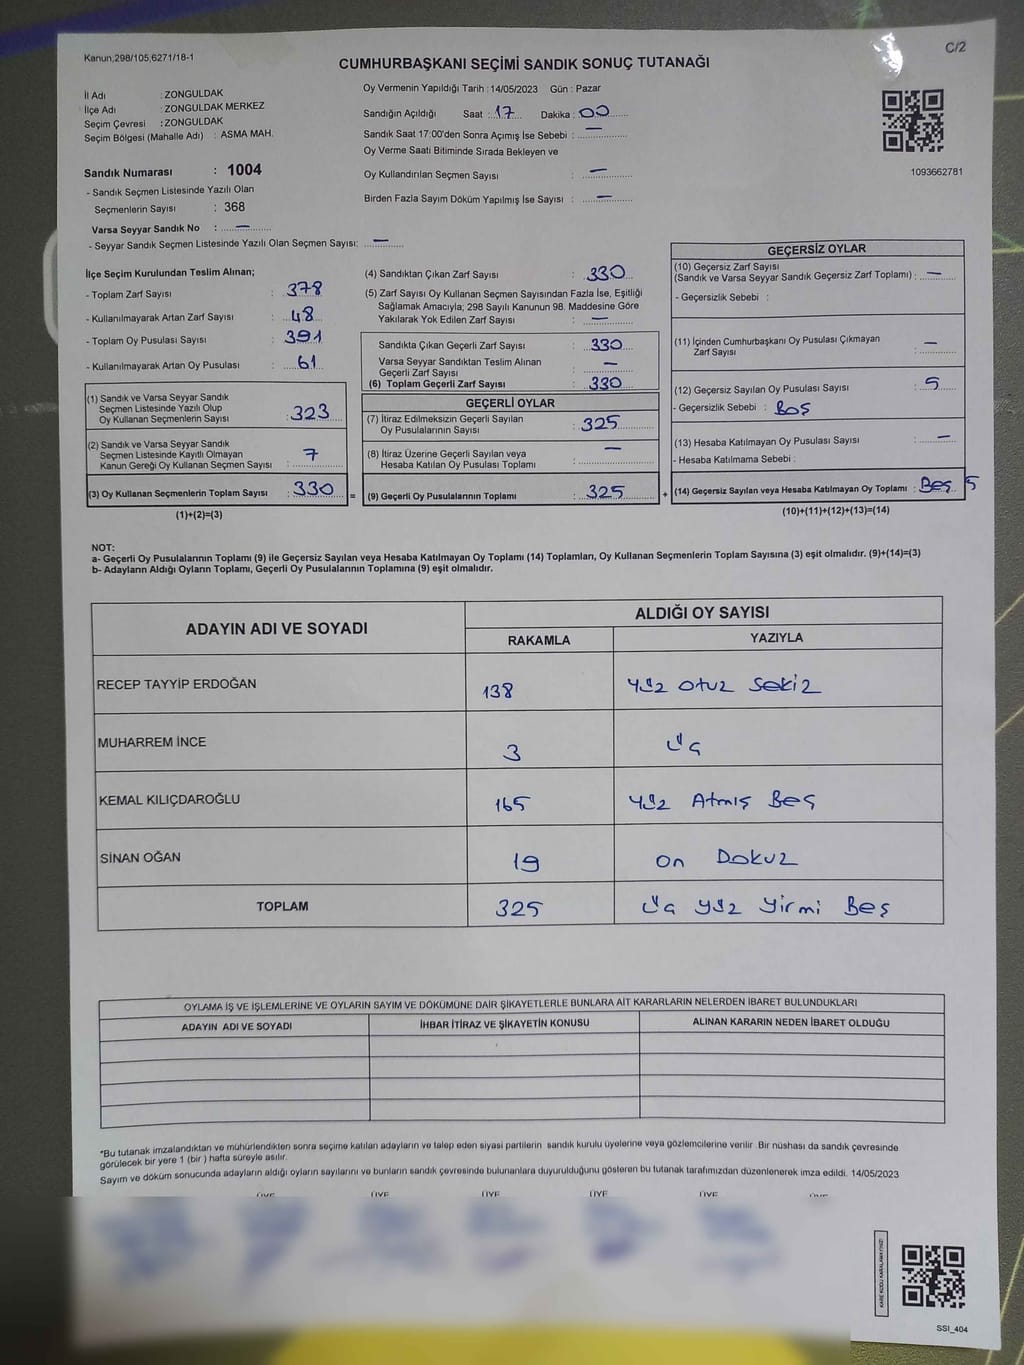 Kanun;298/105;6271/18-1
C/2
CUMHURBAŞKANI SEÇİMİ SANDIK SONUÇ TUTANAĞI
İl Adı : ZONGULDAK
İlçe Adı : ZONGULDAK MERKEZ
Seçim Çevresi : ZONGULDAK
Seçim Bölgesi (Mahalle Adı) : ASMA MAH.
Sandık Numarası : 1004
- Sandık Seçmen Listesinde Yazılı Olan
Seçmenlerin Sayısı : 368
Varsa Seyyar Sandık No : —
- Seyyar Sandık Seçmen Listesinde Yazılı Olan Seçmen Sayısı: —
Oy Vermenin Yapıldığı Tarih : 14/05/2023 Gün : Pazar
Sandığın Açıldığı Saat : 17 Dakika : 00
Sandık Saat 17:00'den Sonra Açımış İse Sebebi : —
Oy Verme Saati Bitiminde Sırada Bekleyen ve
Oy Kullandırılan Seçmen Sayısı : —
Birden Fazla Sayım Döküm Yapılmış İse Sayısı : —
1093662781
İlçe Seçim Kurulundan Teslim Alınan;
- Toplam Zarf Sayısı : 378
- Kullanılmayarak Artan Zarf Sayısı : 48
- Toplam Oy Pusulası Sayısı : 391
- Kullanılmayarak Artan Oy Pusulası : 61
(1) Sandık ve Varsa Seyyar Sandık
Seçmen Listesinde Yazılı Olup
Oy Kullanan Seçmenlerin Sayısı : 323
(2) Sandık ve Varsa Seyyar Sandık
Seçmen Listesinde Kayıtlı Olmayan
Kanun Gereği Oy Kullanan Seçmen Sayısı : 7
(3) Oy Kullanan Seçmenlerin Toplam Sayısı : 330 =
(1)+(2)=(3)
(4) Sandıktan Çıkan Zarf Sayısı : 330
(5) Zarf Sayısı Oy Kullanan Seçmen Sayısından Fazla İse, Eşitliği
Sağlamak Amacıyla; 298 Sayılı Kanunun 98. Maddesine Göre
Yakılarak Yok Edilen Zarf Sayısı : —
Sandıkta Çıkan Geçerli Zarf Sayısı : 330
Varsa Seyyar Sandıktan Teslim Alınan
Geçerli Zarf Sayısı : —
(6) Toplam Geçerli Zarf Sayısı : 330
GEÇERLİ OYLAR
(7) İtiraz Edilmeksizin Geçerli Sayılan
Oy Pusulalarının Sayısı : 325
(8) İtiraz Üzerine Geçerli Sayılan veya
Hesaba Katılan Oy Pusulası Toplamı : —
(9) Geçerli Oy Pusulalarının Toplamı : 325 +
GEÇERSİZ OYLAR
(10) Geçersiz Zarf Sayısı
(Sandık ve Varsa Seyyar Sandık Geçersiz Zarf Toplamı) : —
- Geçersizlik Sebebi :
(11) İçinden Cumhurbaşkanı Oy Pusulası Çıkmayan
Zarf Sayısı : —
(12) Geçersiz Sayılan Oy Pusulası Sayısı : 5
- Geçersizlik Sebebi : Boş
(13) Hesaba Katılmayan Oy Pusulası Sayısı : —
- Hesaba Katılmama Sebebi :
(14) Geçersiz Sayılan veya Hesaba Katılmayan Oy Toplamı : Beş 5
(10)+(11)+(12)+(13)=(14)
NOT:
a- Geçerli Oy Pusulalarının Toplamı (9) ile Geçersiz Sayılan veya Hesaba Katılmayan Oy Toplamı (14) Toplamları, Oy Kullanan Seçmenlerin Toplam Sayısına (3) eşit olmalıdır. (9)+(14)=(3)
b- Adayların Aldığı Oyların Toplamı, Geçerli Oy Pusulalarının Toplamına (9) eşit olmalıdır.
ADAYIN ADI VE SOYADI ALDIĞI OY SAYISI
RAKAMLA YAZIYLA
RECEP TAYYİP ERDOĞAN 138 yüz otuz sekiz
MUHARREM İNCE 3 üç
KEMAL KILIÇDAROĞLU 165 yüz Atmış Beş
SİNAN OĞAN 19 on Dokuz
TOPLAM 325 üç yüz yirmi Beş
OYLAMA İŞ VE İŞLEMLERİNE VE OYLARIN SAYIM VE DÖKÜMÜNE DAİR ŞİKAYETLERLE BUNLARA AİT KARARLARIN NELERDEN İBARET BULUNDUKLARI
ADAYIN ADI VE SOYADI İHBAR İTİRAZ VE ŞİKAYETİN KONUSU ALINAN KARARIN NEDEN İBARET OLDUĞU
*Bu tutanak imzalandıktan ve mühürlendikten sonra seçime katılan adayların ve talep eden siyasi partilerin sandık kurulu üyelerine veya gözlemcilerine verilir. Bir nüshası da sandık çevresinde
görülecek bir yere 1 (bir ) hafta süreyle asılır.
Sayım ve döküm sonucunda adayların aldığı oyların sayılarını ve bunların sandık çevresinde bulunanlara duyurulduğunu gösteren bu tutanak tarafımızdan düzenlenerek imza edildi. 14/05/2023
ÜYE ÜYE ÜYE ÜYE ÜYE
KARE KODU KARALAMAYINIZ!
SSI_404